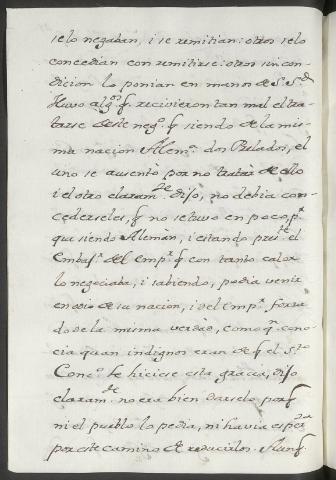 selo negaban, i se remitian: otros selo
concedian con remitirse: otros sin con
dicion lo ponian en mano de S. S.d
Huvo alg.os q. recivieron tan mal el tra
tarse deste neg.o q. siendo de la mis
ma nacion Alem.a dos Prelados, el
uno se ausentò por no tratar de ello
i el otro claram.te dijo, no debia con
cederseles, q. no se tuvo en poco, p.r
que siendo Alemàn, i estando pres.te el
Embax.r del Emp.r q. con tanto calor
lo negociaba, i sabiendo, podia venir
en odio de su nacion, i del Emp.r forza
do de la misma verdad, como q.n cono
cia quan indignos eran de q. el S.to
Conc.o les hiciese esta gracia, dijo
claram.te no era bien darselo, porq.
ni el pueblo lo pedia, ni havia esper.za
por este camino de reducirlos. Aunq.